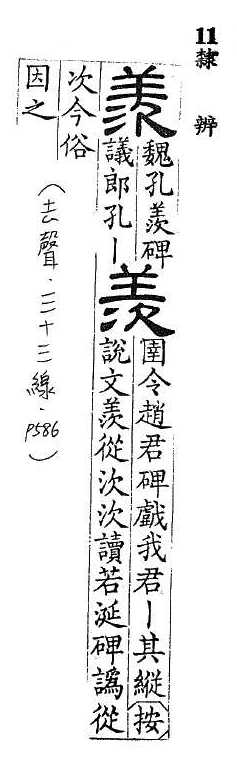 11隸辨
羨
魏孔羨碑
議郎孔丨
羨
圉令趙君碑戲我君丨其縱按
說文羨從㳄㳄讀若涎碑譌從
次今俗
因之
(去聲.三十三線.P586)